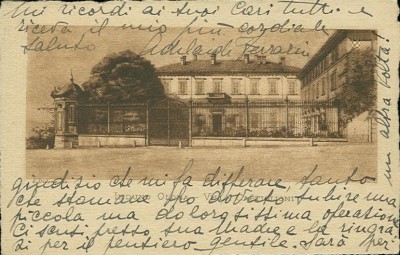 Mi ricordi ai suoi cari tutti e
riceva il mio più cordiale
saluto Adelaide
giudizio che mi fa differire, tanto
che stamane ho dovuto subire una
piccola ma dolorosissima operazione
Ci scusi presso sua Madre e la ringra
zi per il pensiero gentile. Sarà per
un altra volta!